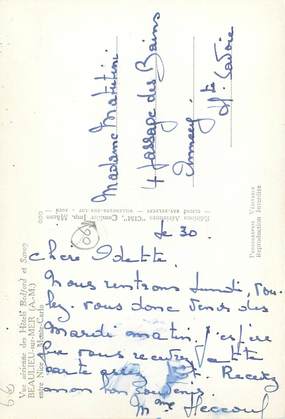 le 30.
Chère Odette
Nous rentrons lundi, vou-
lez-vous donc venir dès
Mardi matin. J'espère
que vous recevrez cette
carte
mon bon souvenir.
Mme
Madame
4 passage des Bains
Annecy
Hte Savoie
Editions Aériennes "CIM", Combier Imp. Mâcon
Vue aérienne des Hôtels Bedford et Savoy
BEAULIEU-sur-MER (A.-M.)
entre Nice et Monte-Carlo
Reproduction Interdite